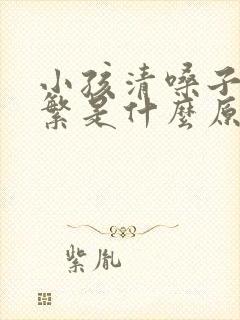 小孩清嗓子
繁是什麼原
紫胤